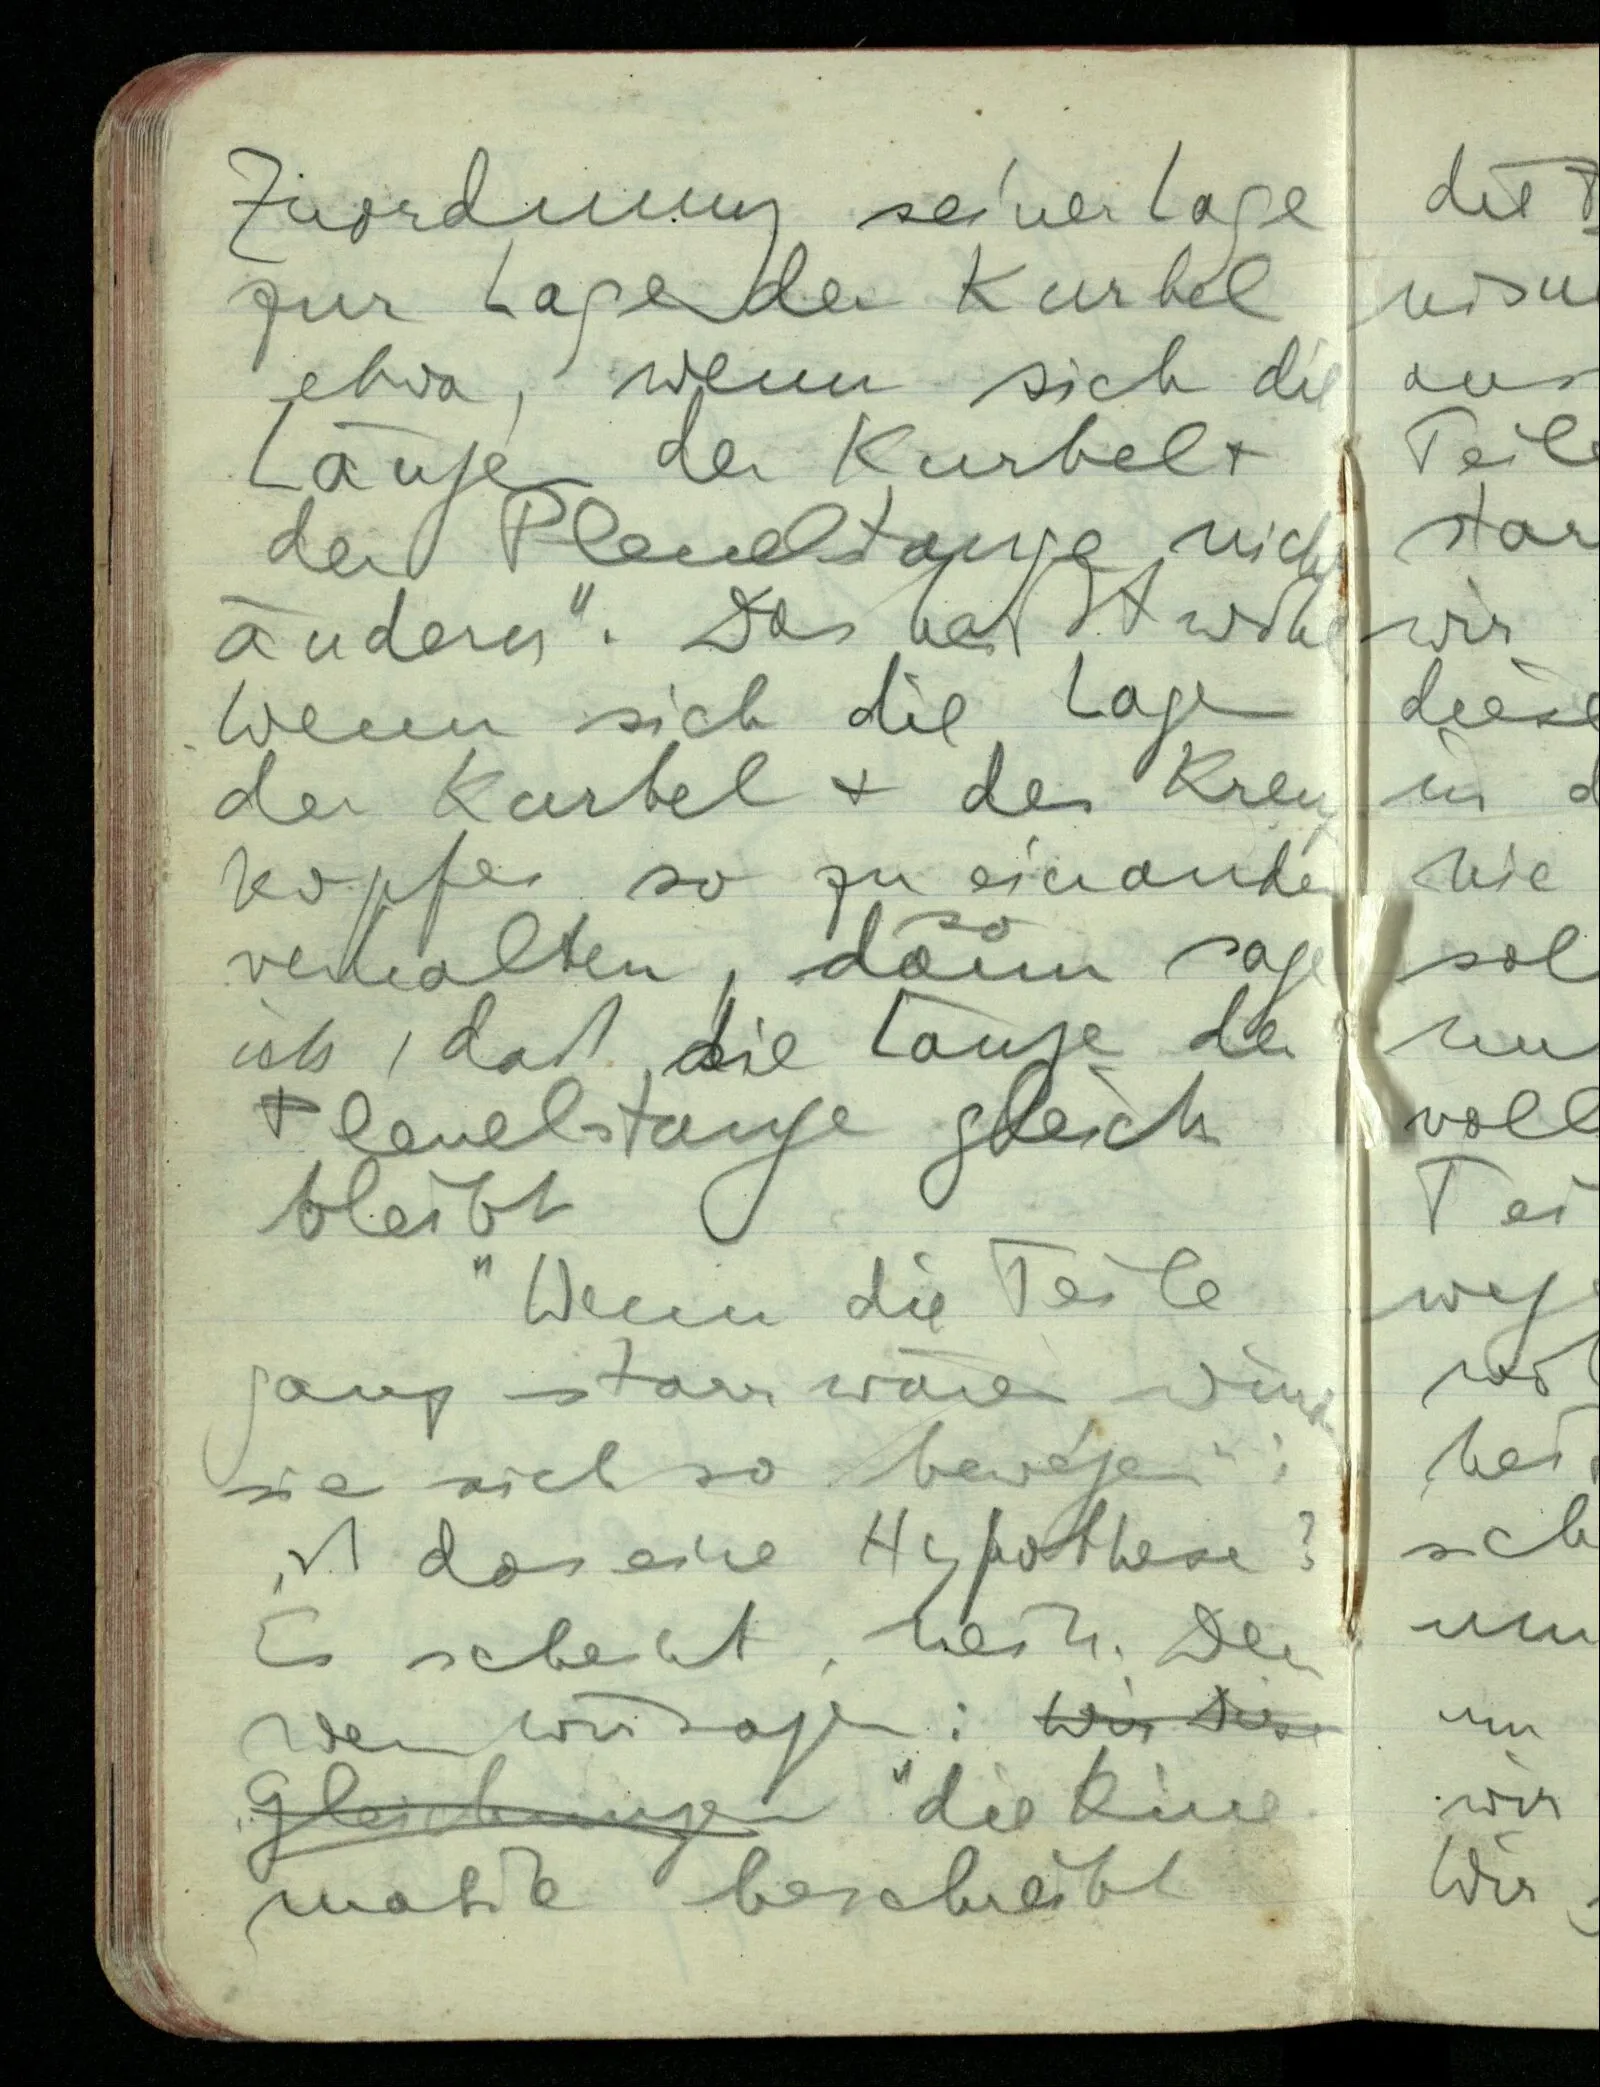 Zuordnung seiner Lage
zur Lage der Kurbel
etwa, wenn sich die
Länge der Kurbel +
der Pleuelstange nicht
ändern". Das heißt wohl
wenn sich die Lage
der Kurbel + des Kreuz
kopfes so zu einander
so
verhalten, dann sage
ich, daß die Länge der
Pleuelstange gleich
bleibt
"Wenn die Teile
ganz starr wären würden
sie sich so bewegen":
ist das eine Hypothese?
Es scheint, nein. Den
wenn wir sagen: Wir Diese
Gleichungen "die Kine
matik beschreibt
die
aus
Teile
star
wir
diese
in d
nie
sol
nu
voll
Tei
wege
sch
um
wir
Wir